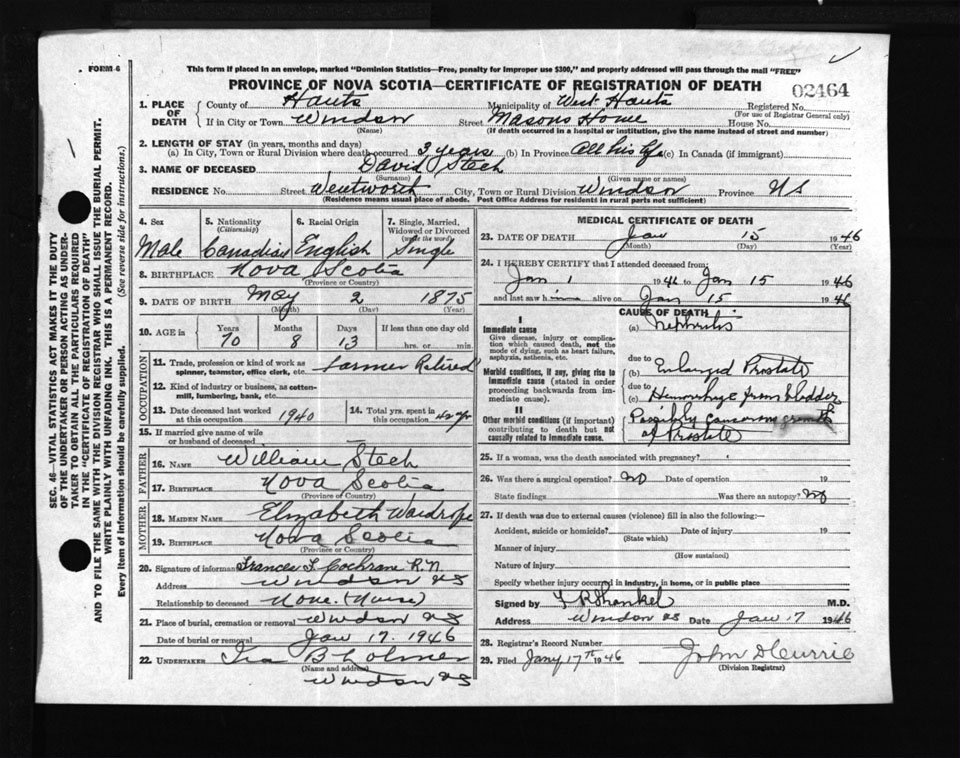 FORM 6
This form if placed in an envelope, marked "Dominion Statistics—Free, penalty for improper use $300," and properly addressed will pass through the mail "FREE"
PROVINCE OF NOVA SCOTIA—CERTIFICATE OF REGISTRATION OF DEATH
02464
1. PLACE OF DEATH County of Hants Municipality of West Hants Registered No.
(For use of Registrar General only)
If in City or Town Windsor Street Masons Home House No.
(Name) (If death occurred in a hospital or institution, give the name instead of street and number)
2. LENGTH OF STAY (in years, months and days)
(a) In City, Town or Rural Division where death occurred 3 years (b) In Province All his life (c) In Canada (if immigrant)
3. NAME OF DECEASED David Stech
(Surname) (Given name or names)
RESIDENCE No. Street Wentworth City, Town or Rural Division Windsor Province NS
(Residence means usual place of abode. Post Office Address for residents in rural parts not sufficient)
4. Sex 5. Nationality (Citizenship) 6. Racial Origin 7. Single, Married, Widowed or Divorced (write the word)
Male Canadian English Single
8. BIRTHPLACE Nova Scotia
(Province or Country)
9. DATE OF BIRTH May 2 1875
(Month) (Day) (Year)
10. AGE in Years Months Days If less than one day old
70 8 13 hrs. or min.
OCCUPATION
11. Trade, profession or kind of work as spinner, teamster, office clerk, etc. Farmer Retired
12. Kind of industry or business, as cotton-mill, lumbering, bank, etc.
13. Date deceased last worked at this occupation 1940 14. Total yrs. spent in this occupation 40 yr
15. If married give name of wife or husband of deceased
FATHER
16. NAME William Stech
17. BIRTHPLACE Nova Scotia
(Province or Country)
MOTHER
18. MAIDEN NAME Elizabeth Wardrope
19. BIRTHPLACE Nova Scotia
(Province or Country)
20. Signature of informant Frances L Cochrane R.N.
Address Windsor NS
Relationship to deceased None. (Nurse)
21. Place of burial, cremation or removal Windsor NS
Date of burial or removal Jan 17. 1946
22. UNDERTAKER Ira B
(Name and address)
Windsor NS
MEDICAL CERTIFICATE OF DEATH
23. DATE OF DEATH Jan 15 1946
(Month) (Day) (Year)
24. I HEREBY CERTIFY that I attended deceased from:
Jan 1 1946 to Jan 15 1946
and last saw him alive on Jan 15 1946
I
Immediate cause
Give disease, injury or complication which caused death, not the mode of dying, such as heart failure, asphyxia, asthenia, etc.
Morbid conditions, if any, giving rise to immediate cause (stated in order proceeding backwards from immediate cause).
II
Other morbid conditions (if important) contributing to death but not causally related to immediate cause.
CAUSE OF DEATH
(a) Nephritis
due to
(b) Enlarged Prostate
due to
(c) Hemorrhage from bladder
Possibly growth
of Prostate
25. If a woman, was the death associated with pregnancy?
26. Was there a surgical operation? no Date of operation 19
State findings Was there an autopsy? no
27. If death was due to external causes (violence) fill in also the following:—
Accident, suicide or homicide? Date of injury 19
(State which)
Manner of injury
(How sustained)
Nature of injury
Specify whether injury occurred in industry, in home, or in public place
Signed by F R Shankel M.D.
Address Windsor NS Date Jan 17 1946
28. Registrar's Record Number
29. Filed Jany 17th 1946 John D Currie
(Division Registrar)
SEC. 46—VITAL STATISTICS ACT MAKES IT THE DUTY
OF THE UNDERTAKER OR PERSON ACTING AS UNDER-
TAKER TO OBTAIN ALL THE PARTICULARS REQUIRED
IN THE "CERTIFICATE OF REGISTRATION OF DEATH"
AND TO FILE THE SAME WITH THE DIVISION REGISTRAR WHO SHALL ISSUE THE BURIAL PERMIT.
WRITE PLAINLY WITH UNFADING INK. THIS IS A PERMANENT RECORD.
Every item of information should be carefully supplied. (See reverse side for instructions.)